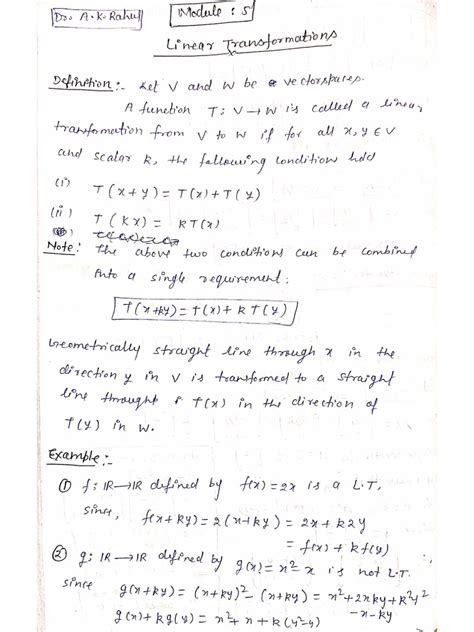 Dr. A.K. Rahul
Module : 5
Linear Transformations
Definition :- Let V and W be vectorspaces.
A function T : V → W is called a linear
transformation from V to W if for all x, y ∈ V
and scalar k, the following condition hold
(i) T(x+y) = T(x)+T(y)
(ii) T(kx) = kT(x)
Note : The above two conditions can be combined
into a single requirement:
T(x+ky) = T(x)+kT(y)
Geometrically straight line through x in the
direction y in V is transformed to a straight
line throught T(x) in the direction of
T(y) in W.
Example :-
① f : IR → IR defined by f(x) = 2x is a L.T.
since, f(x+ky) = 2(x+ky) = 2x + k2y
= f(x) + k f(y)
② g : IR → IR defined by g(x) = x² - x is not L.T.
since g(x+ky) = (x+ky)² - (x+ky) = x² + 2xky + k²y²
- x - ky
g(x) + kg(y) = x² + x + k(y² - y)